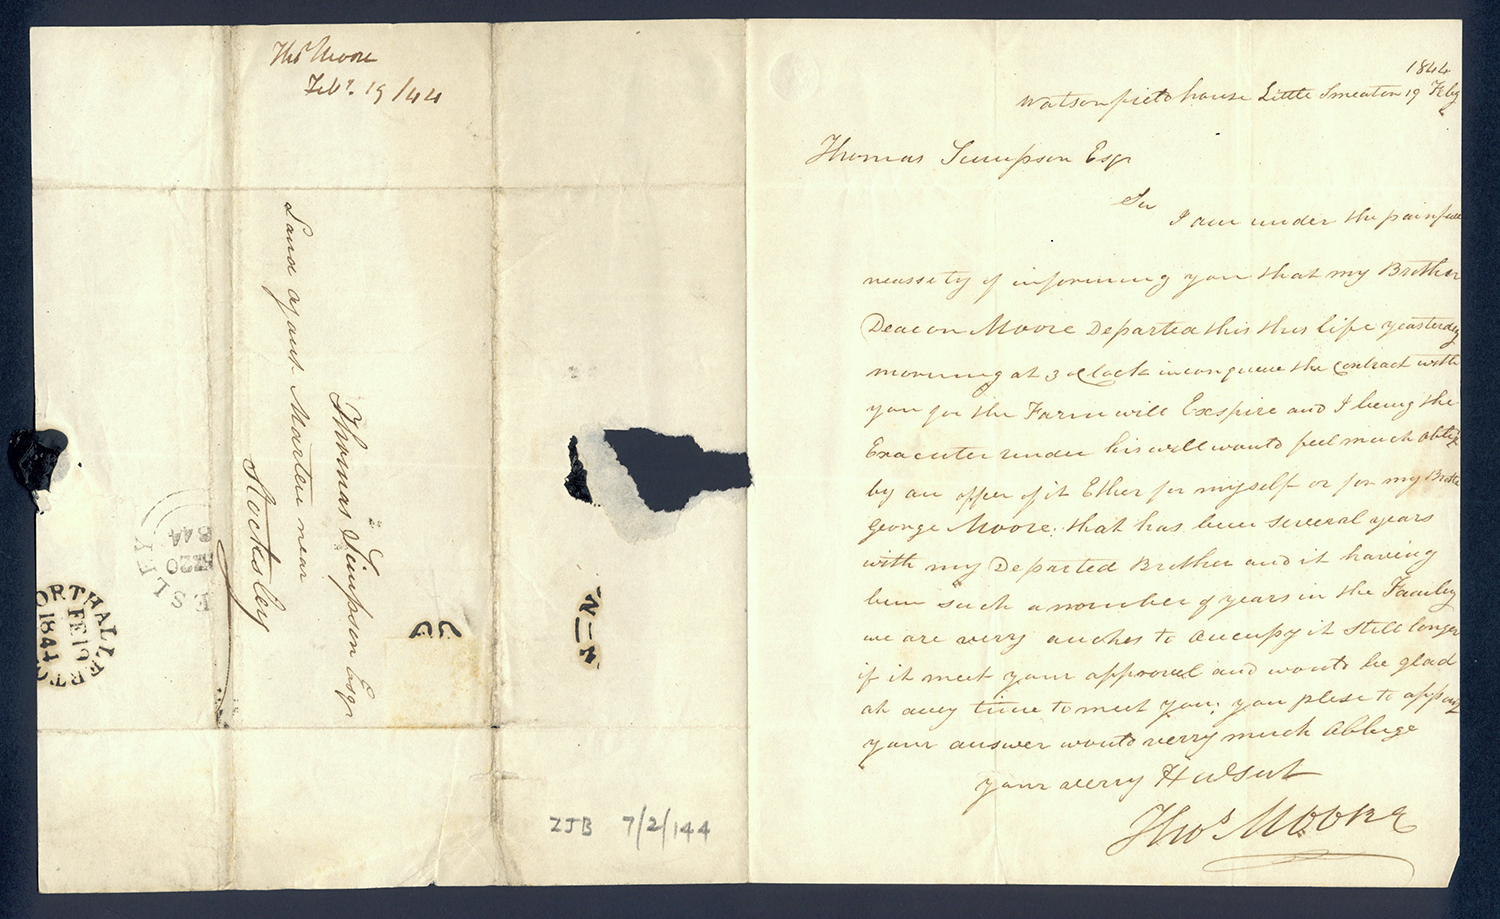 Thos Moore
Feby. 19/44
Thomas Simpson Esqr
Land agant Marten near
Stocksley
ESLEY
20
844
NORTHALLERTON
FE 19
1844
ZJB 7/2/144
1844
Watsonfield house Little Smeaton 19 Feby
Thomas Simpson Esqr
Sir
I am under the painfull
neassety of informing you that my Brother
Deacon Moore Departed this this life yeasterday
morning at 3 oClock inconquence the Contract with
you for the Farm will Exspire and I being the
Exacuter under his will would feel much oblig
by an offer of it Ether for myself or for my Brother
George Moore, that has been several years
with my Departed Brother and it having
been such a number of years in the Famley
we are verry anches to accupy it still longer
if it meet your approval and would be glad
at aney time to meet you, you plese to appoint
your answer would verry much Abbuge
your verry Hulsut
Thos Moore